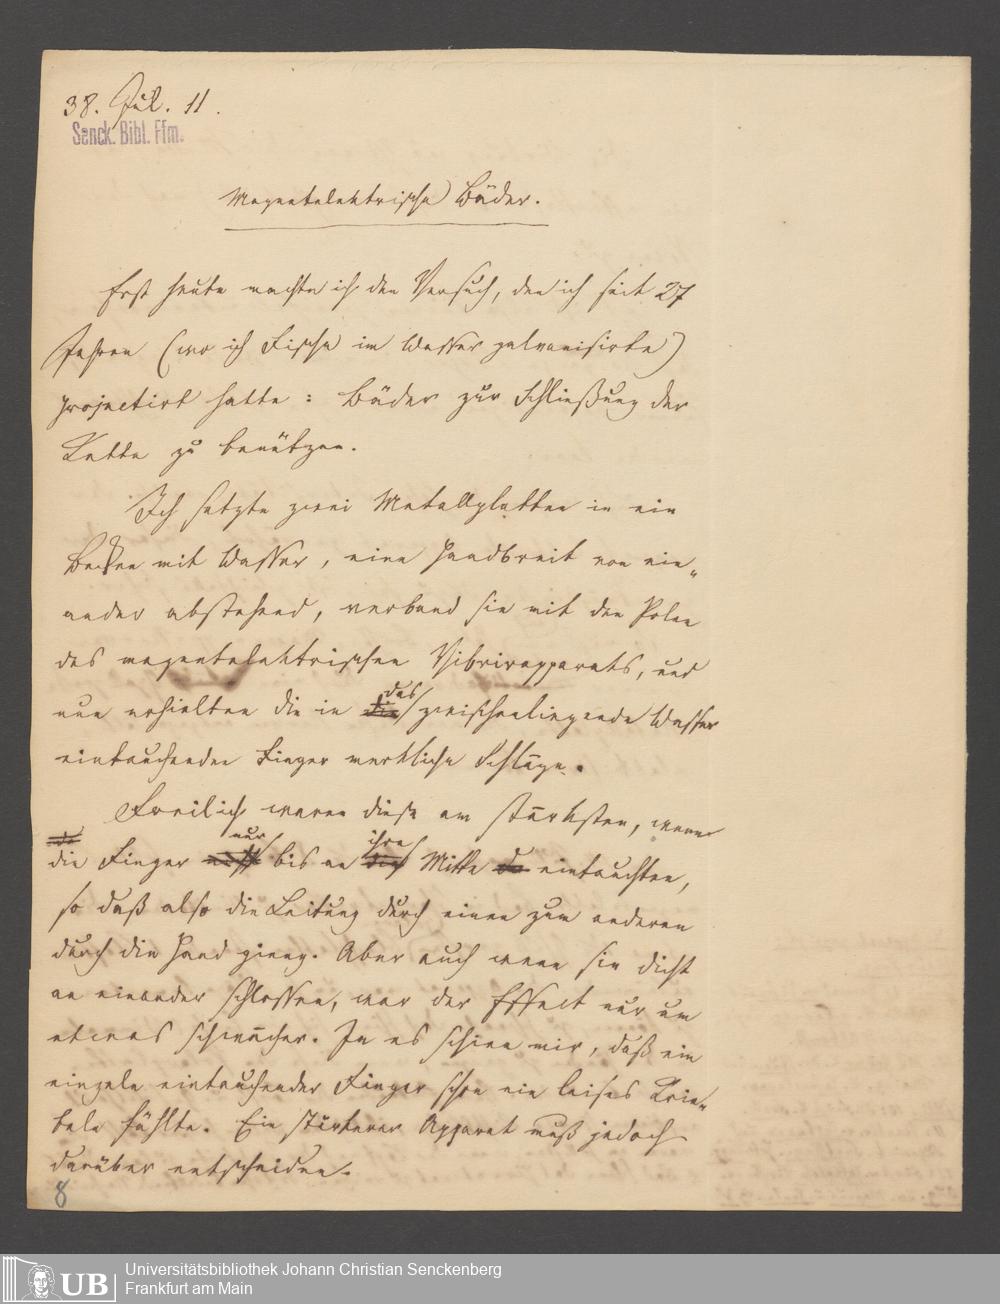 38. Jul. 11.
Senck. Bibl. Ffm.
Magnetelektrische Bäder.
Erst heute machte ich den Versuch, den ich seit 27
Jahren (wo ich Fische im Wasser galvanisirte)
projectirt hatte: Bäder zur Schließung der
Kette zu benützen.
Ich setzte zwei Metallplatten in ein
Becken mit Wasser, eine Handbreit von ein-
ander abstehend, verband sie mit den Polen
des magnetelektrischen Vibrirapparats, und
das
nun erhielten die in die zwischenliegende Wasser
eintauchenden Finger merkliche Schläge.
Freilich waren diese am stärksten, wenn
nur ihre
die Finger nicht bis an die Mitte eintauchten,
so daß also die Leitung durch einen zum anderen
durch die Hand gieng. Aber auch wenn sie dicht
an einander schlossen, war der Effect nur um
etwas schwächer. Ja es schien mir, daß ein
einzeln eintauchender Finger schon ein leises Krie-
beln fühlte. Ein stärkerer Apparat muß jedoch
darüber entscheiden.
8
UB
Universitätsbibliothek Johann Christian Senckenberg
Frankfurt am Main